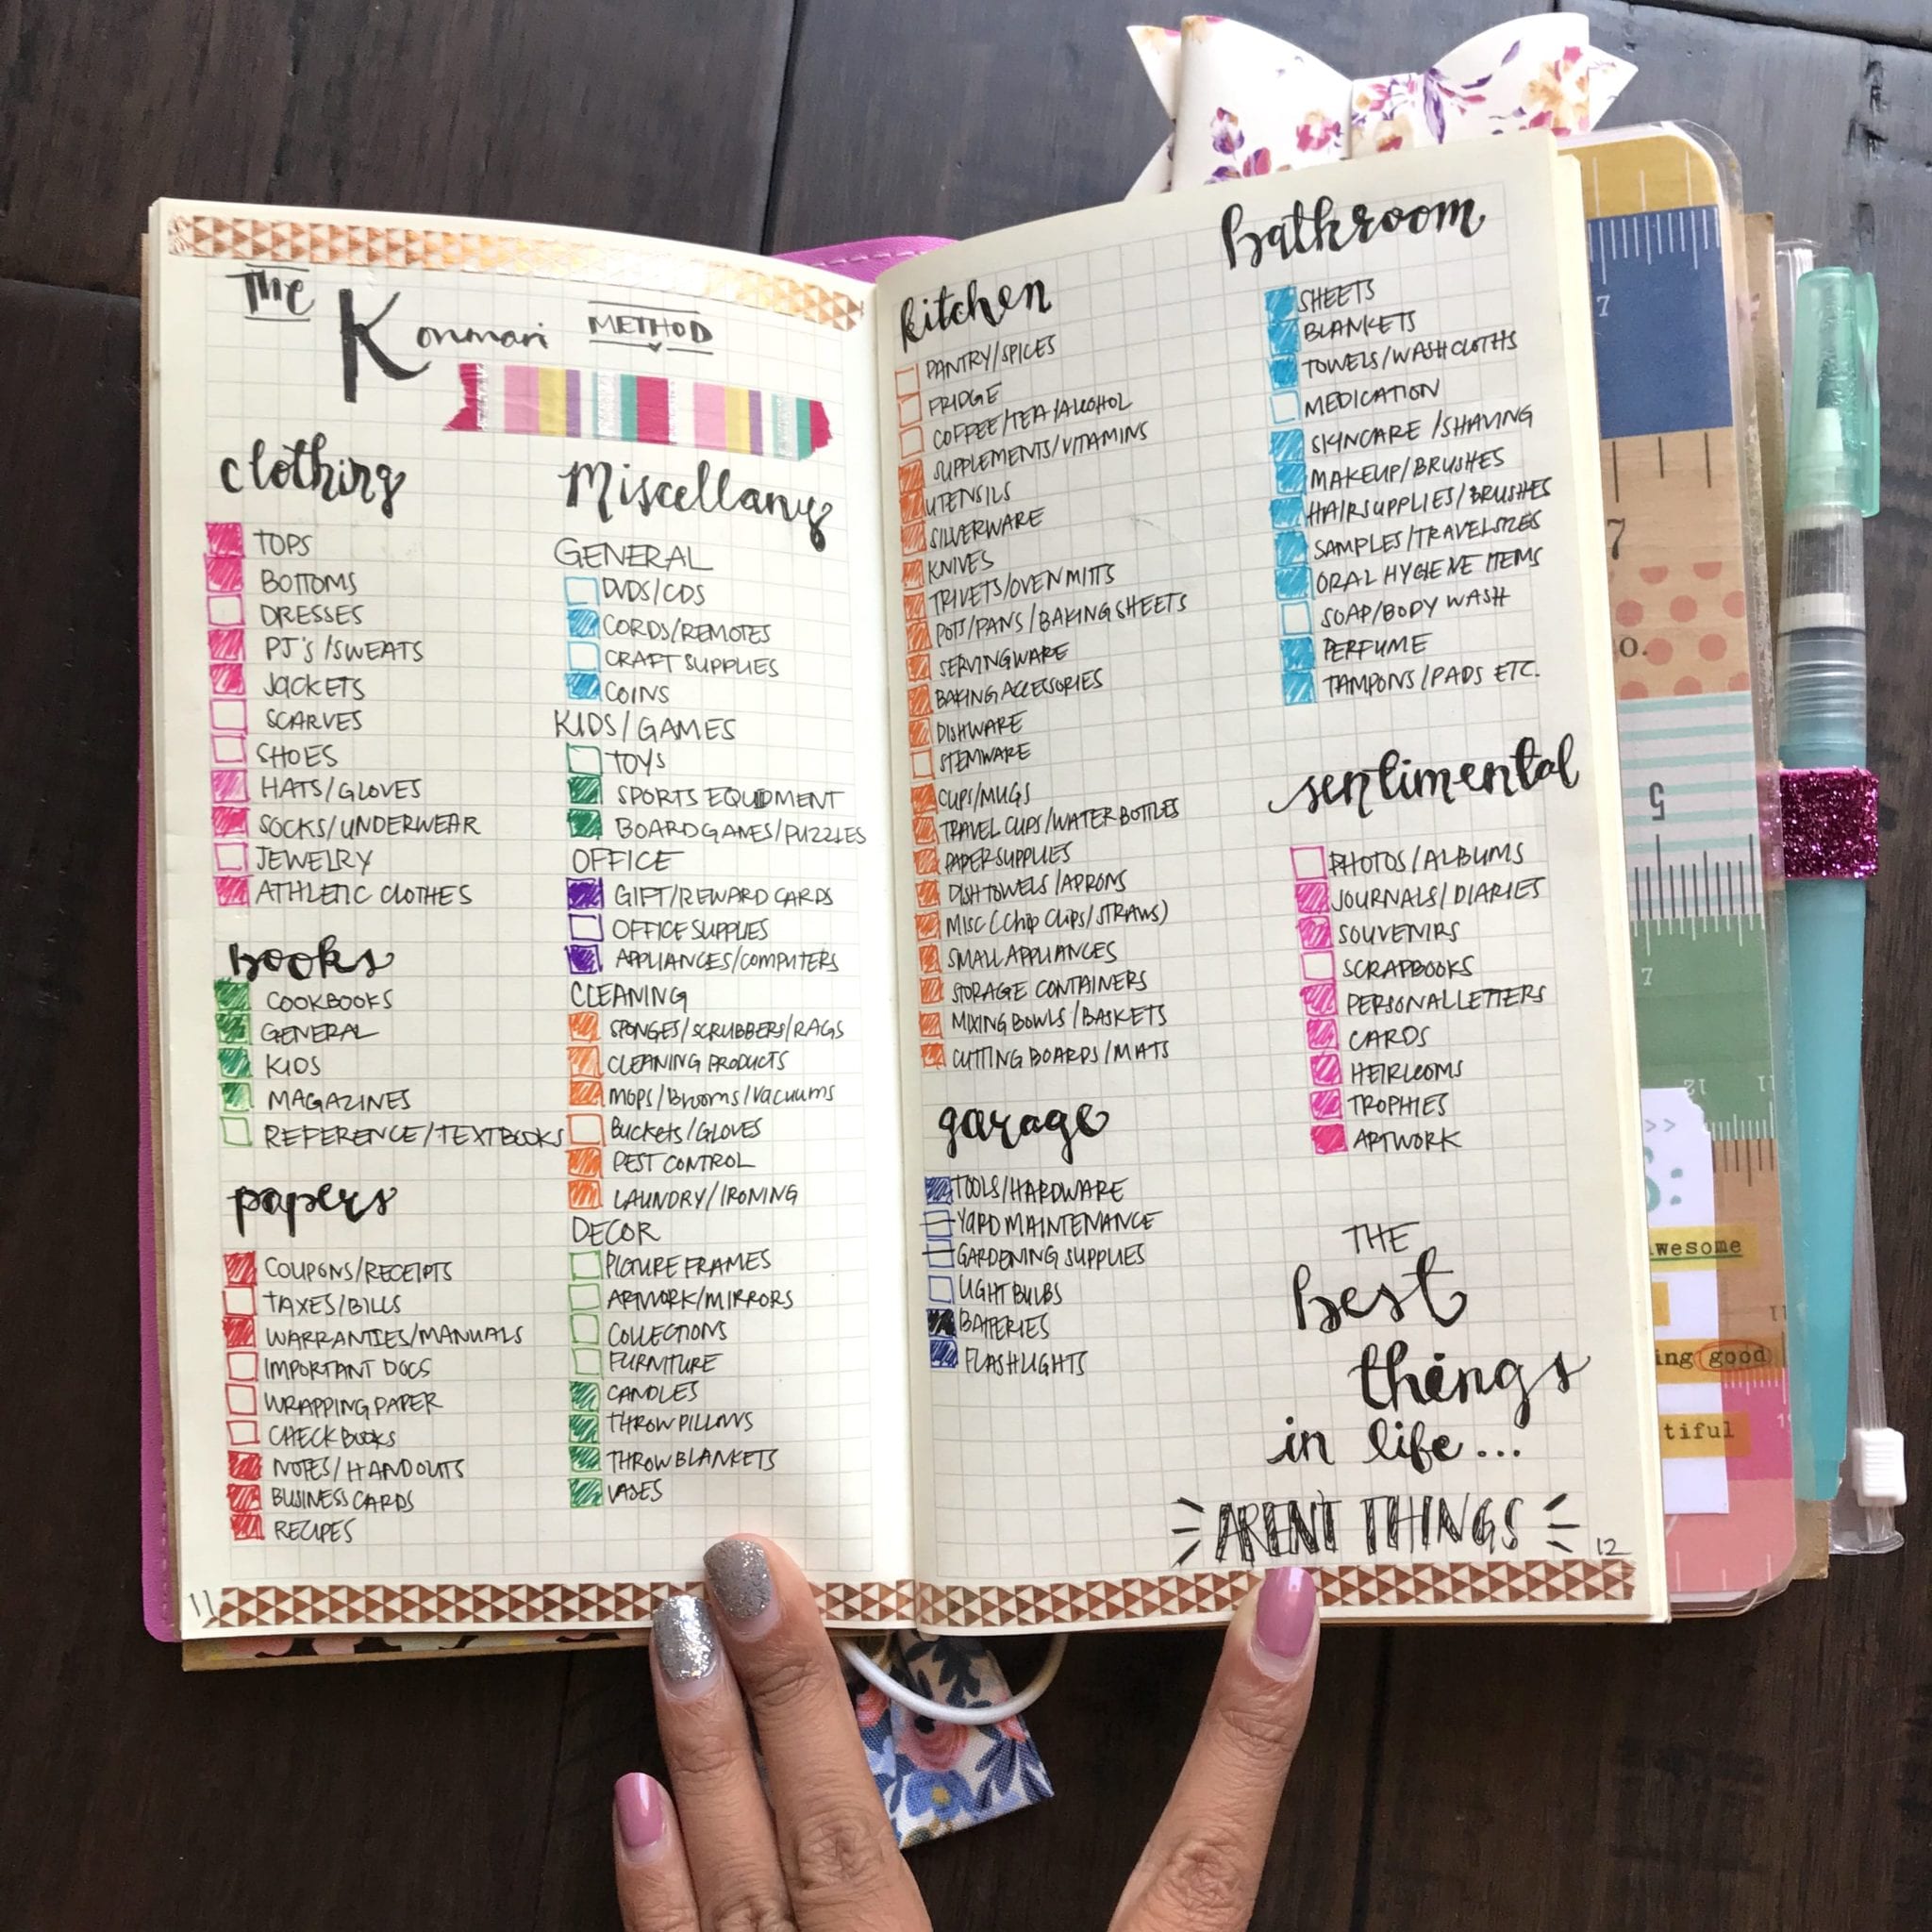 THE
Konmari METHOD
clothing
TOPS
BOTTOMS
DRESSES
PJ's/SWEATS
JACKETS
SCARVES
SHOES
HATS/GLOVES
SOCKS/UNDERWEAR
JEWELRY
ATHLETIC CLOTHES
books
COOKBOOKS
GENERAL
KIDS
MAGAZINES
REFERENCE/TEXTBOOKS
papers
COUPONS/RECEIPTS
TAXES/BILLS
WARRANTIES/MANUALS
IMPORTANT DOCS
WRAPPING PAPER
CHECKBOOKS
NOTES/HANDOUTS
BUSINESS CARDS
RECIPES
11
Miscellany
GENERAL
DVDS/CDS
CORDS/REMOTES
CRAFT SUPPLIES
COINS
KIDS/GAMES
TOYS
SPORTS EQUIPMENT
BOARDGAMES/PUZZLES
OFFICE
GIFT/REWARD CARDS
OFFICE SUPPLIES
APPLIANCES/COMPUTERS
CLEANING
SPONGES/SCRUBBERS/RAGS
CLEANING PRODUCTS
MOPS/Brooms/Vacuums
Buckets/GLOVES
PEST CONTROL
LAUNDRY/IRONING
DECOR
PICTURE FRAMES
ARTWORK/MIRRORS
COLLECTIONS
FURNITURE
CANDLES
THROW PILLOWS
THROW BLANKETS
VASES
kitchen
PANTRY/SPICES
FRIDGE
COFFEE/TEA/ALCOHOL
SUPPLEMENTS/VITAMINS
UTENSILS
SILVERWARE
KNIVES
TRIVETS/OVEN MITTS
POTS/PANS/BAKING SHEETS
SERVINGWARE
BAKING ACCESSORIES
DISHWARE
STEMWARE
CUPS/MUGS
TRAVEL CUPS/WATER BOTTLES
PAPER SUPPLIES
DISH TOWELS/APRONS
MISC (Chip Clips/STRAWS)
SMALL APPLIANCES
STORAGE CONTAINERS
MIXING BOWLS/BASKETS
CUTTING BOARDS/MATS
garage
TOOLS/HARDWARE
YARD MAINTENANCE
GARDENING SUPPLIES
LIGHT BULBS
BATTERIES
FLASHLIGHTS
bathroom
SHEETS
BLANKETS
TOWELS/WASHCLOTHS
MEDICATION
SKINCARE/SHAVING
MAKEUP/BRUSHES
HAIR SUPPLIES/BRUSHES
SAMPLES/TRAVEL SIZES
ORAL HYGIENE ITEMS
SOAP/BODY WASH
PERFUME
TAMPONS/PADS ETC.
sentimental
PHOTOS/ALBUMS
JOURNALS/DIARIES
SOUVENIRS
SCRAPBOOKS
PERSONAL LETTERS
CARDS
HEIRLOOMS
TROPHIES
ARTWORK
THE
best
things
in life...
ARENT THINGS
12
7
7
o.
5
7
12
11
>>
wesome
11
ing good
tiful